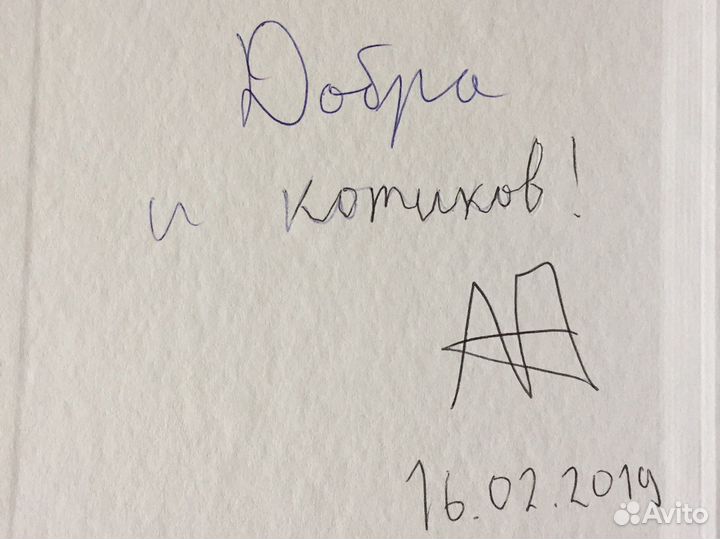 Добра
и котиков!
16.02.2019
Avito